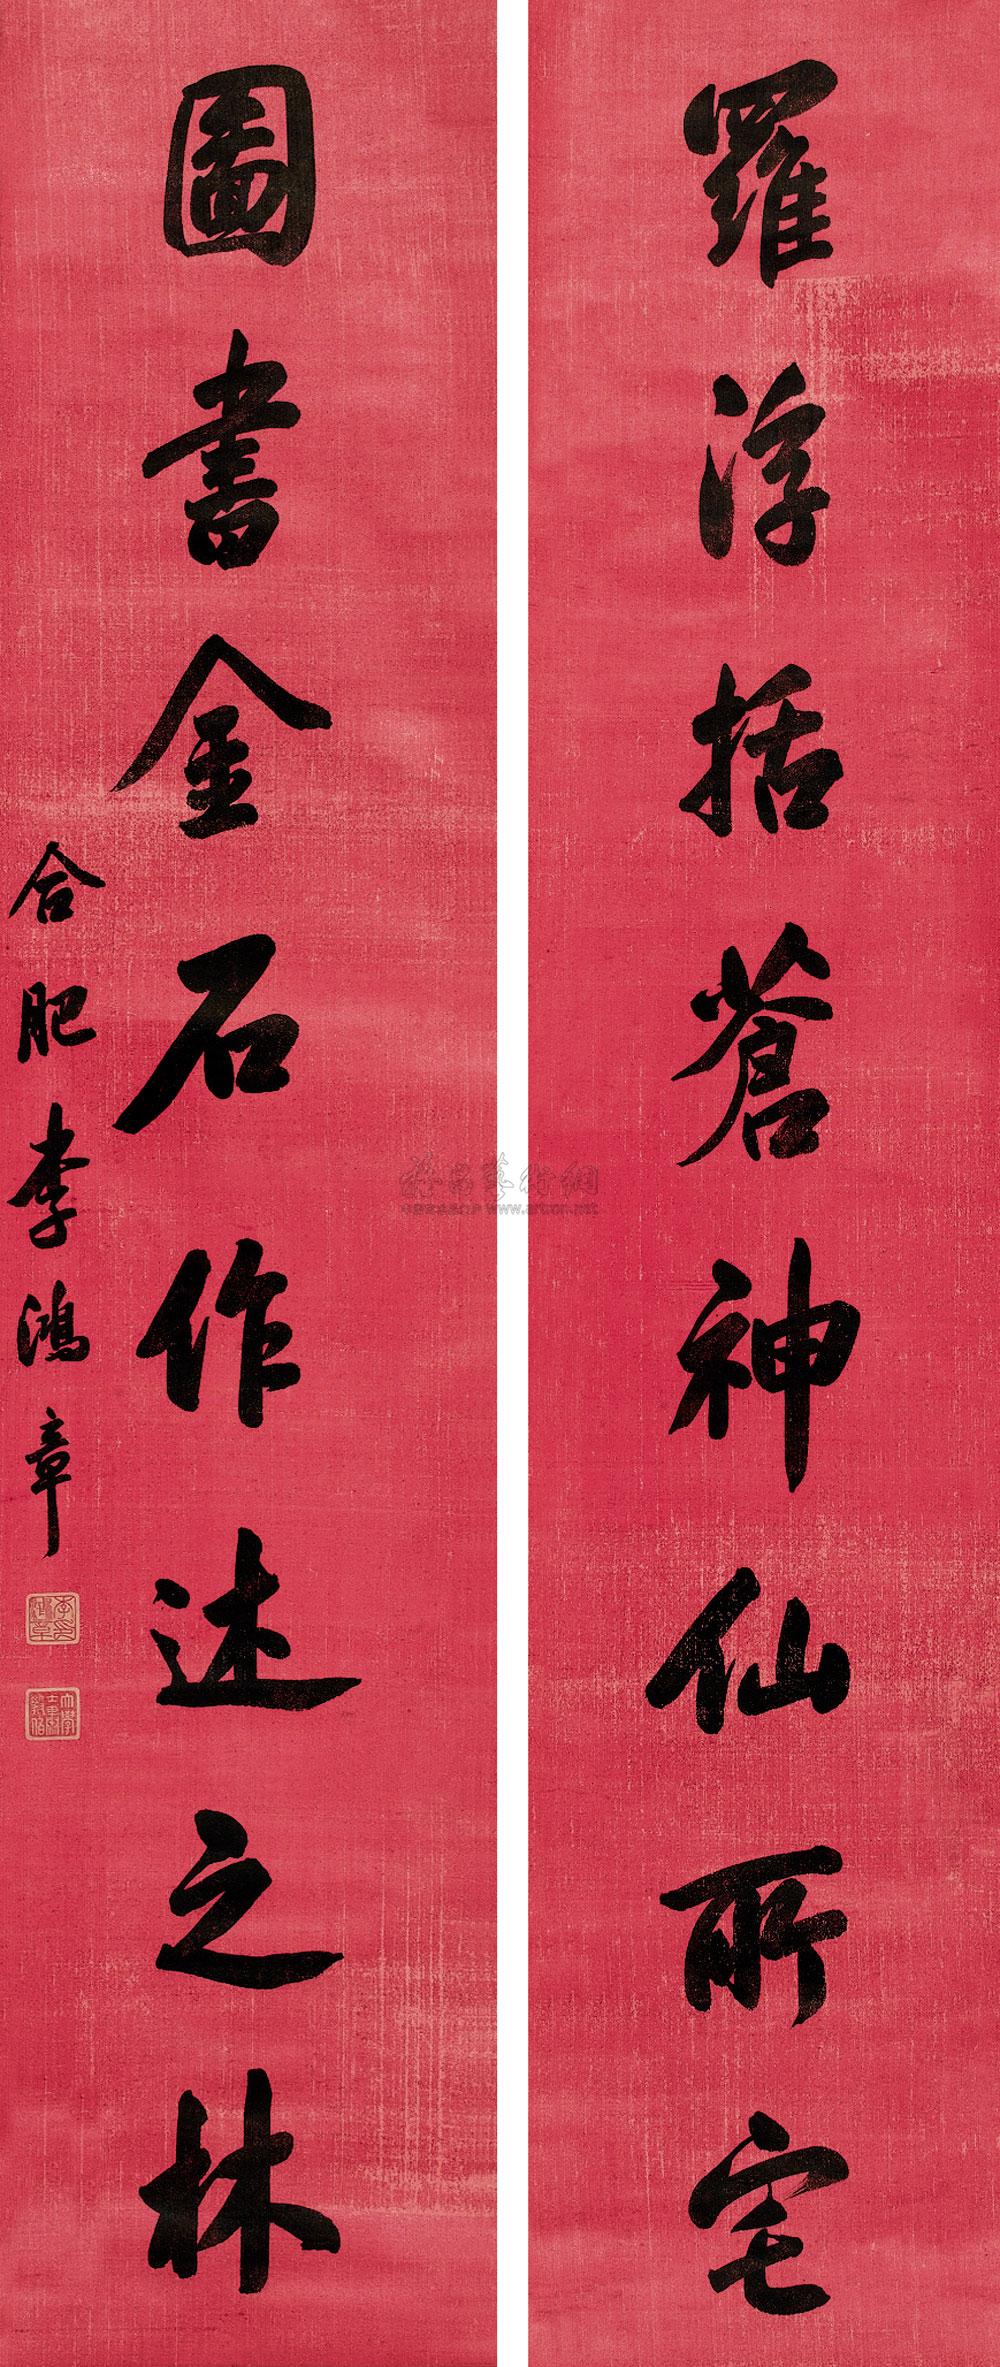 羅浮括蒼神仙所宅
圖書金石作述之林
合肥李鴻章
www.artron.net